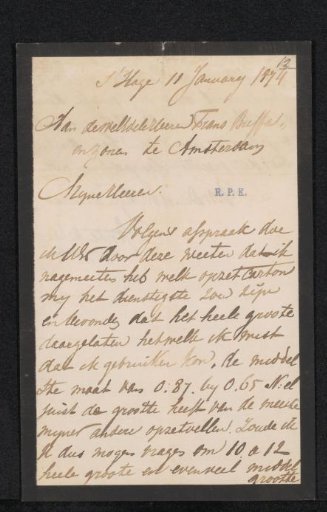 12
s'Hage 11 January 1874
Aan de WelEdele Heeren Frans Buffa
en Zonen te Amsterdam
Myne Heeren.
R.P.K.
Volgens afspraak doe
ik UEd door deze weeten dat ik
nagemeeten heb welk opzet carton
my het dienstigste zou zijn
en bevonden dat het heele groote
daargelaten hetwelk ik
dat ik gebruiken kon, de middel
ste maat van 0.87. by 0.65 N. el
juist de grootte heeft van de meeste
myner andere opzetvellen. Zoude ik
U dus mogen vragen om 10 a 12
heele groote en evenveel middel
grootte